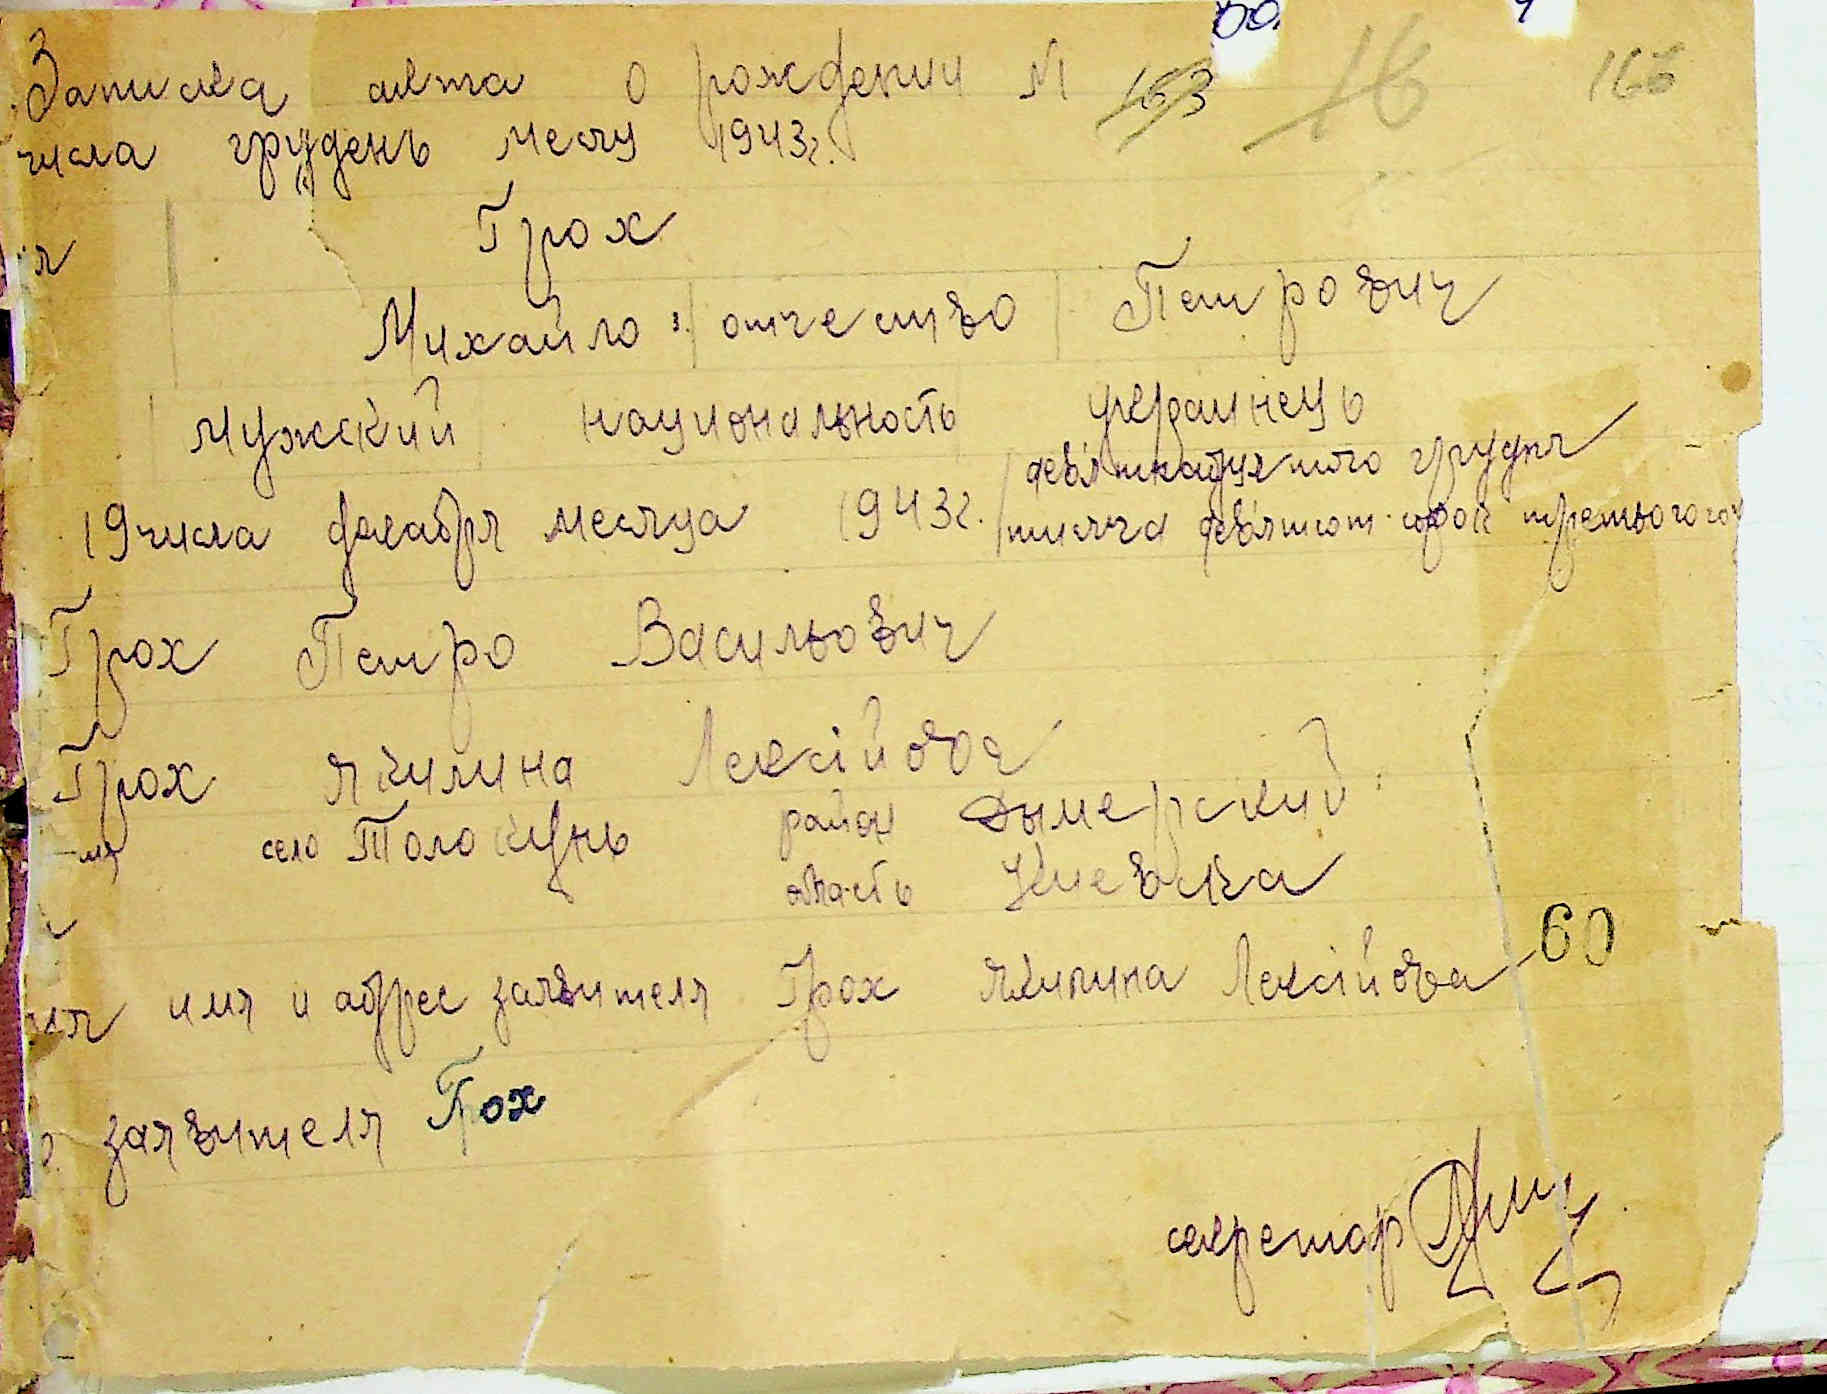 50.
Записка акта о рождении № 163 16 166
числа грудень месяц 1943г.
я
Грох
Михайло отчество Петрович
мужский национальность украинець
19 числа декабря месяца 1943г. дев'ятнадцятого грудня
тисяча дев'ятсот сорок третього году
Грох Петро Васильович
Грох Якилина Лексійовна
село Толокунь район Дымерский
область Киевска
60
имя и адрес заявителя Грох Якилина Лексійовна
заявителя Грох
секретар